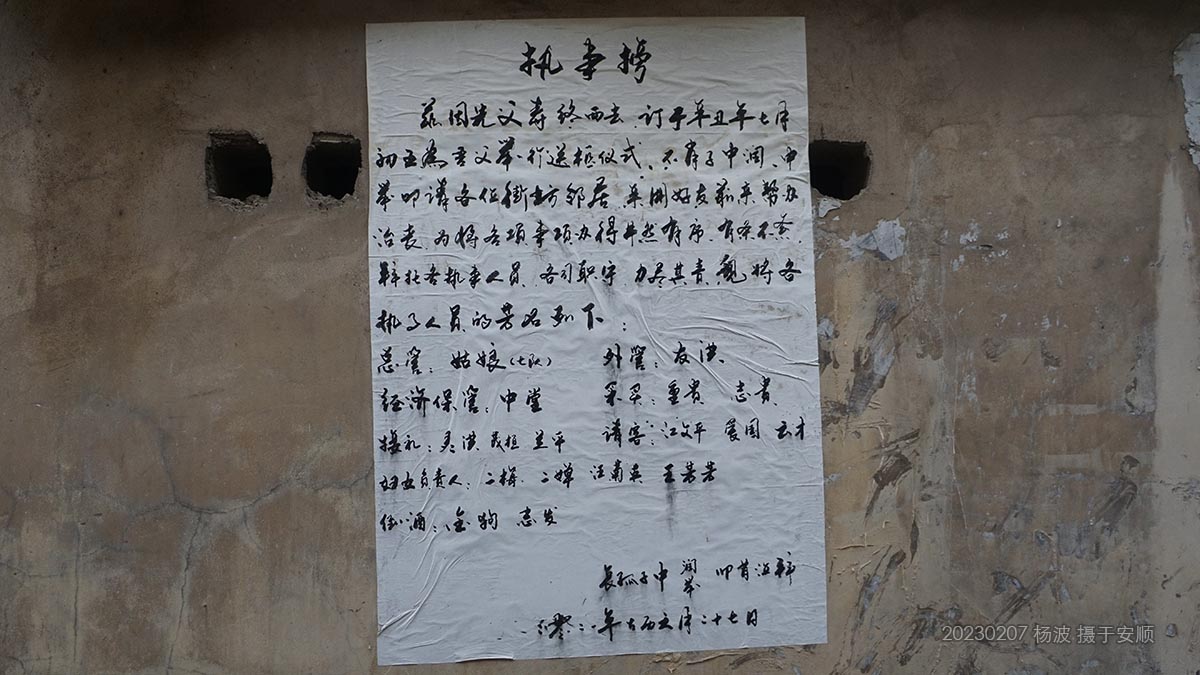 执事榜
兹因先父寿终而去,订于辛丑年七月
初五为吾父举行送柩仪式、不肖子中润、中
举叩请各位街坊邻居、亲朋好友前来帮办
治丧,为将各项事项办得井然有序,有条不紊,
辞托各执事人员,各司职守,力尽其责,现将各
执事人员的芳名列下:
总管:姑娘(七队) 外管:友洪
经济保管:中堂 采买:重贵 志贵
接礼:洪 茂植 兰平 请客:江文平 爱国 玉才
妇女负责人:二梅 二婶 汪菊英 王芬芬
倒酒:金狗 志发
长孤子中润举 叩首泣辞
二零二一年古历六月二十七日
20230207 杨波 摄于安顺